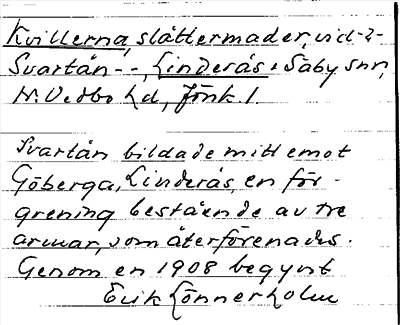 Kvillerna, slåttermader, vid -2-
Svartån - -, Linderås o Säby snr,
N. Vedbo hd, Jönk l.
Svartån bildade mitt emot
Göberga, Linderås, en för-
grening bestående av tre
armar, som återförenades.
Genom en 1908 begynt
Erik Lönnerholm